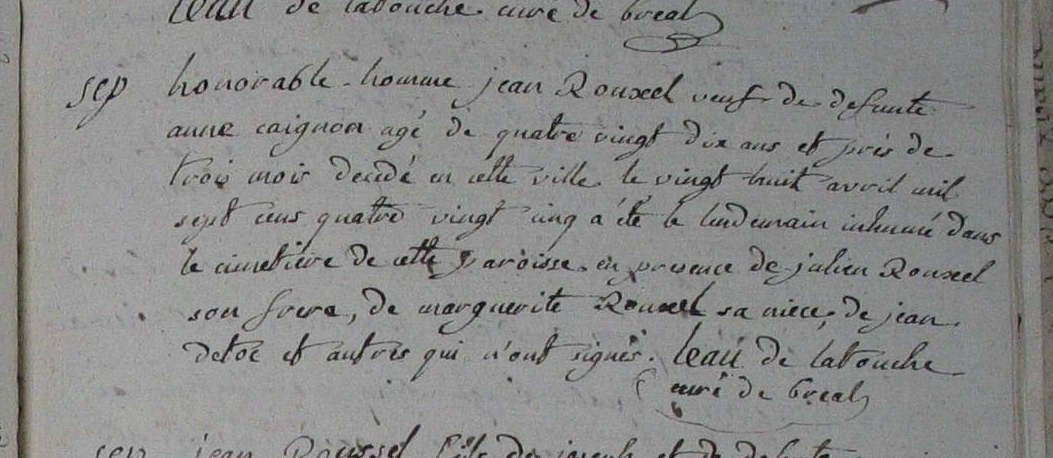 leau de latouche curé de breal
sep honorable homme jean Rouxel veuf de defunte
anne caignon agé de quatre vingt dix ans et près de
trois mois decedé en cette ville le vingt huit avril mil
sept cens quatre vingt cinq a été le lendemain inhumé dans
le cimetière de cette paroisse en presence de julien Rouxel
son frere, de marguerite Rouxel sa niece, de jean
detoc et autres qui n'ont signés. leau de latouche
curé de breal
sep jean Roussel fils de joseph et de defunte